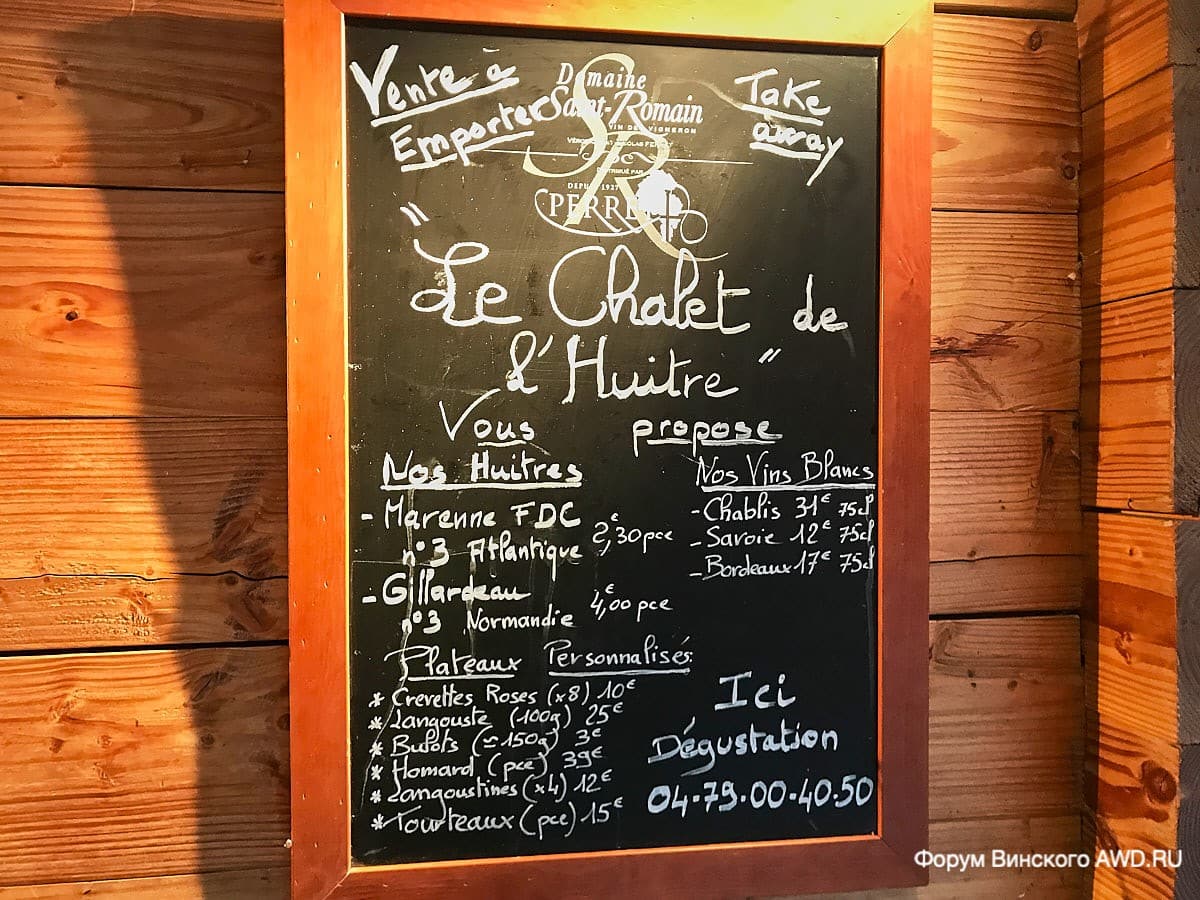 Vente à
Emporter
Take
away
Domaine
Saint-Romain
VIN DE VIGNERON
DEPUIS 1927
" Le Chalet de
l'Huitre "
Vous propose
Nos Huitres
- Marenne FDC
n°3 Atlantique 2,30€ pce
- Gillardeau
n°3 Normandie 4,00€ pce
Nos Vins Blancs
- Chablis 31€ 75cl
- Savoie 12€ 75cl
- Bordeaux 17€ 75cl
Plateaux Personnalisés:
* Crevettes Roses (x8) 10€
* Langouste (100g) 25€
* Bulots (≃150g) 3€
* Homard (pce) 39€
* Langoustines (x4) 12€
* Tourteaux (pce) 15€
Ici
Dégustation
04-79-00-40-50
Форум Винского AWD.RU